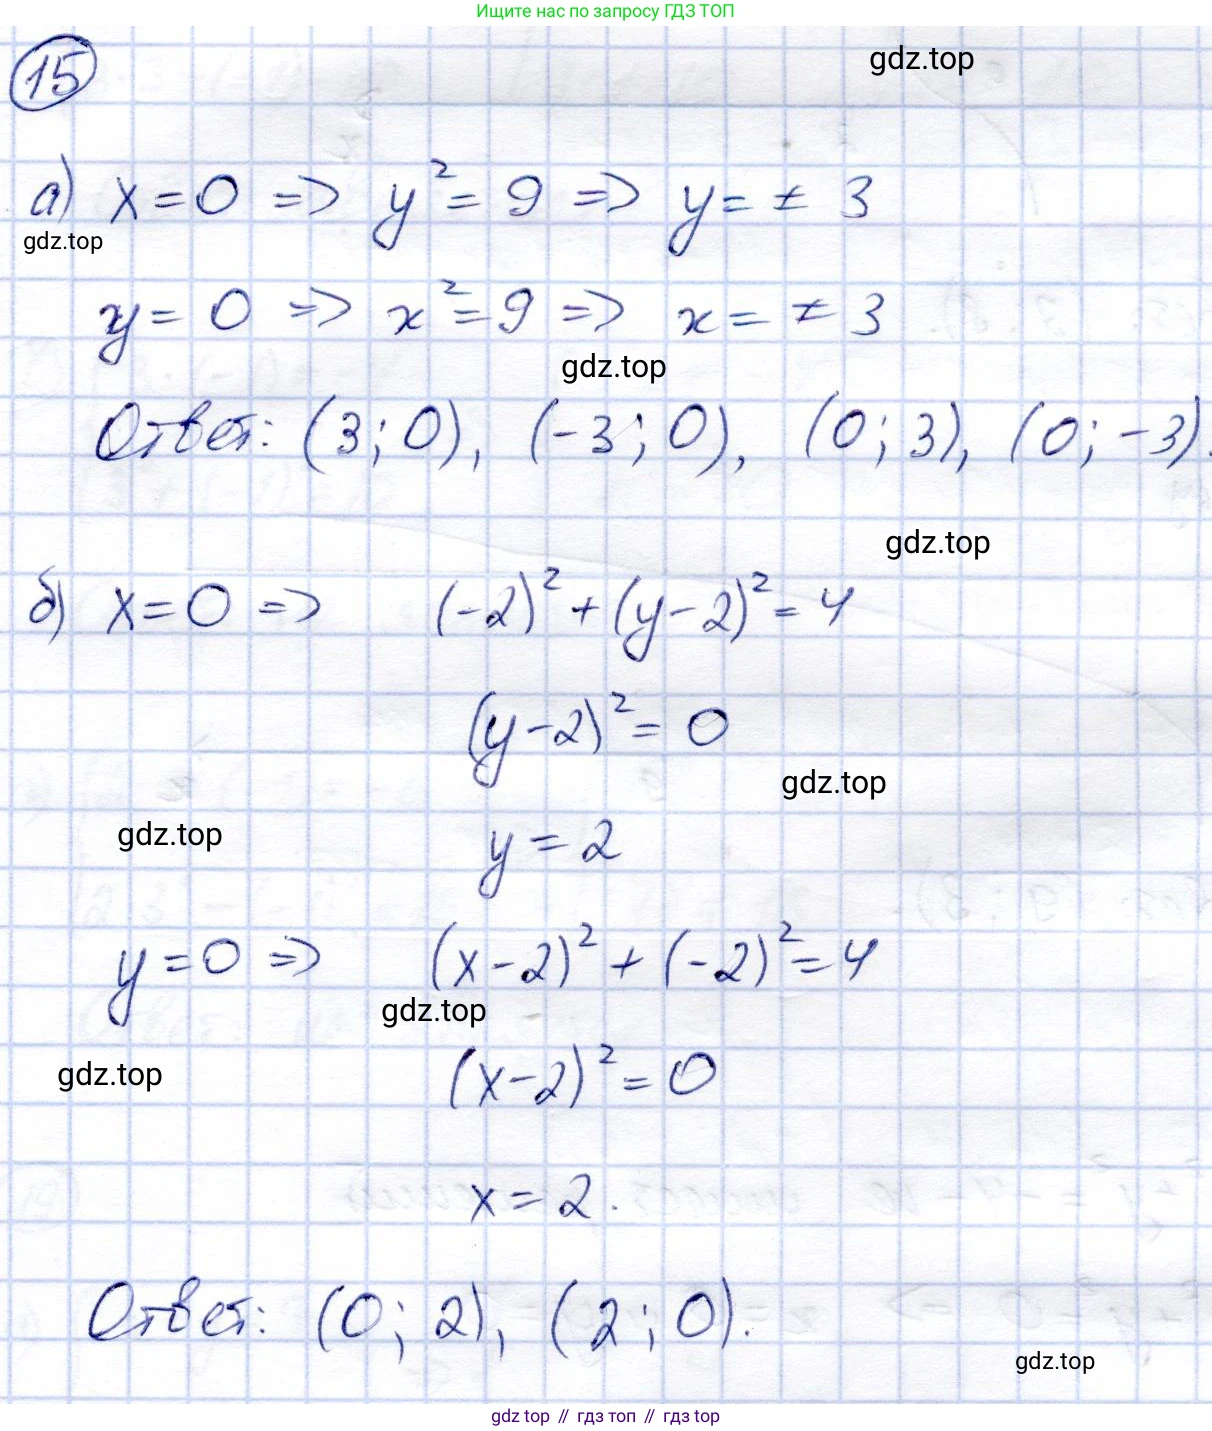 Ищите нас по запросу ГДЗ ТОП
15
gdz.top
а) x = 0 => y² = 9 => y = ± 3
gdz.top
y = 0 => x² = 9 => x = ± 3
gdz.top
Ответ: (3; 0), (-3; 0), (0; 3), (0; -3).
gdz.top
б) x = 0 => (-2)² + (y - 2)² = 4
(y - 2)² = 0
gdz.top
gdz.top
y = 2
y = 0 => (x - 2)² + (-2)² = 4
gdz.top
gdz.top
(x - 2)² = 0
x = 2.
Ответ: (0; 2), (2; 0).
gdz.top
gdz top // гдз топ // гдз top